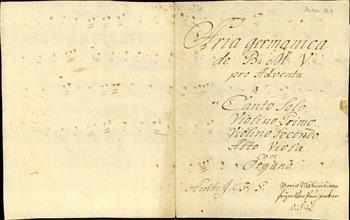 Aria germanica
de B: M: V.
pro Adventu
a
Canto Solo
Violino Primo
Violino Secondo
Alto Viola
con
Organo
Maria Maximiliana